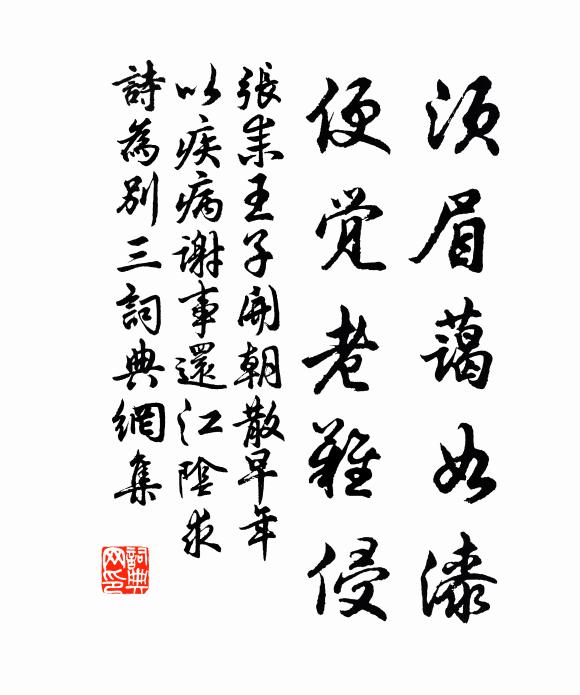 須眉藹如漆
便觉老難侵
張耒王子開朝散早年
以疾病謝事還江陰求
詩為別三詞典網集
詞典网印